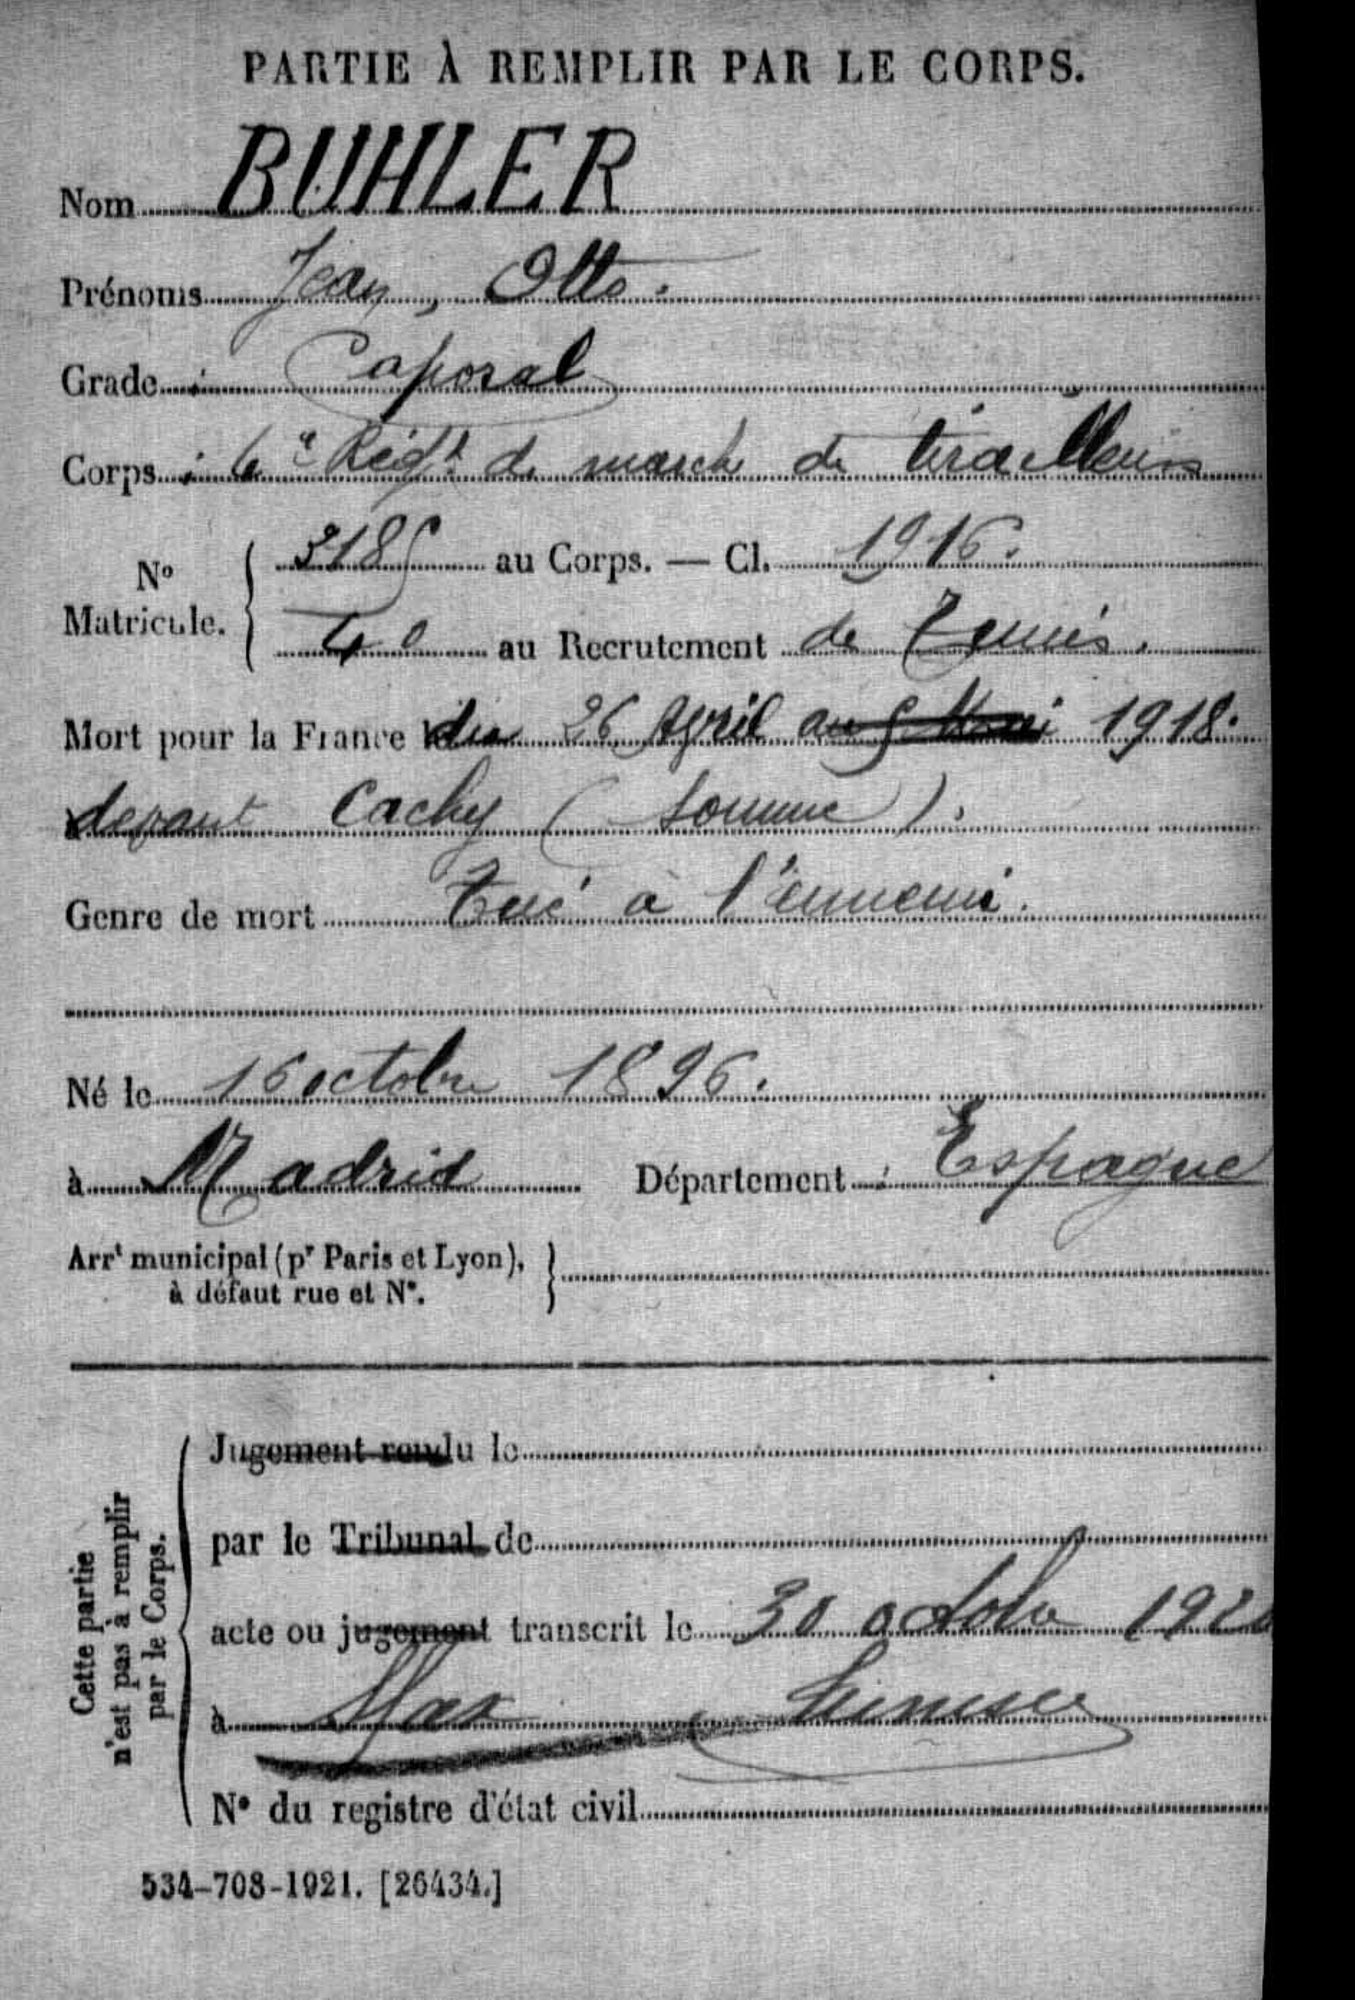 PARTIE À REMPLIR PAR LE CORPS.
Nom BUHLER
Prénoms Jean, Otto.
Grade : Caporal
Corps : 6e Régt de marche de tirailleurs
No Matricule. { 3185 au Corps. — Cl. 1916.
40 au Recrutement de Tunis.
Mort pour la France du 26 Avril au 5 Mai 1918.
devant Cachy (Somme).
Genre de mort Tué à l'ennemi.
Né le 16 octobre 1896.
à Madrid Département : Espagne
Arrt municipal (pr Paris et Lyon), à défaut rue et No. }
Cette partie n'est pas à remplir par le Corps.
Jugement rendu le
par le Tribunal de
acte ou jugement transcrit le 30 octobre 192
à Sfax Tunisie
No du registre d'état civil
534-708-1921. [26434.]